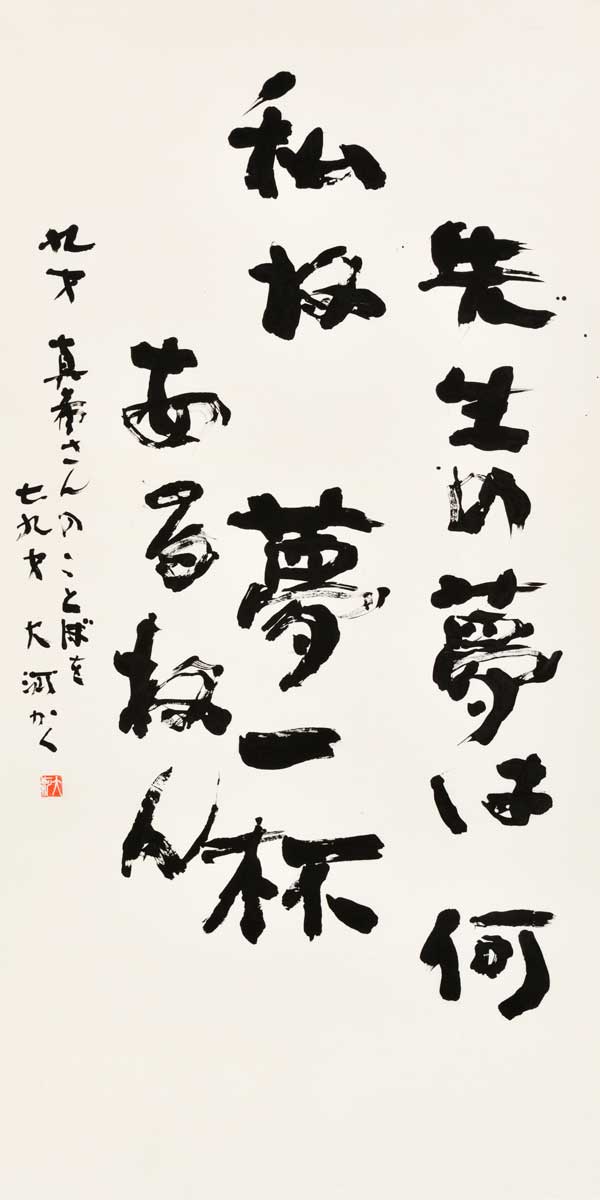 先生の夢は何
私ね夢一杯
あるねん
九才 真希さんのことばを
七九才 大河かく